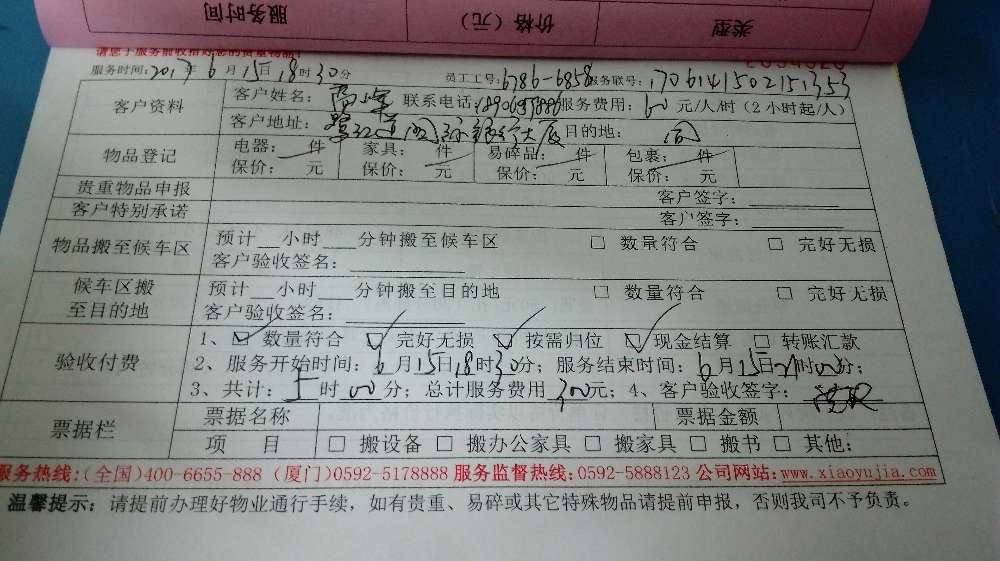 类型 价格（元） 服务时间
请您于服务前收拾好您的贵重物品！
服务时间：2017年6月15日18时30分 员工工号：6786-6858 服务联号：1706141502151353
客户资料 客户姓名： 联系电话： 服务费用：60元/人/时（2小时起/人）
客户地址： 目的地：同
物品登记 电器： 件 家具： 件 易碎品： 件 包裹： 件
保价： 元 保价： 元 保价： 元 保价： 元
贵重物品申报 客户签字：
客户特别承诺 客户签字：
物品搬至候车区 预计__小时___分钟搬至候车区 □ 数量符合 □ 完好无损
客户验收签名：
候车区搬至目的地 预计__小时___分钟搬至目的地 □ 数量符合 □ 完好无损
客户验收签名：
验收付费 1、☑ 数量符合 ☑ 完好无损 ☑ 按需归位 ☑ 现金结算 □ 转账汇款
2、服务开始时间：6月15日18时30分；服务结束时间：6月15日21时00分；
3、共计：5时00分；总计服务费用300元；4、客户验收签字：
票据栏 票据名称 票据金额
项 目 □ 搬设备 □ 搬办公家具 □ 搬家具 □ 搬书 □ 其他：
服务热线：(全国)400-6655-888 (厦门)0592-5178888 服务监督热线：0592-5888123 公司网站：www.xiaoyujia.com
温馨提示：请提前办理好物业通行手续，如有贵重、易碎或其它特殊物品请提前申报，否则我司不予负责。